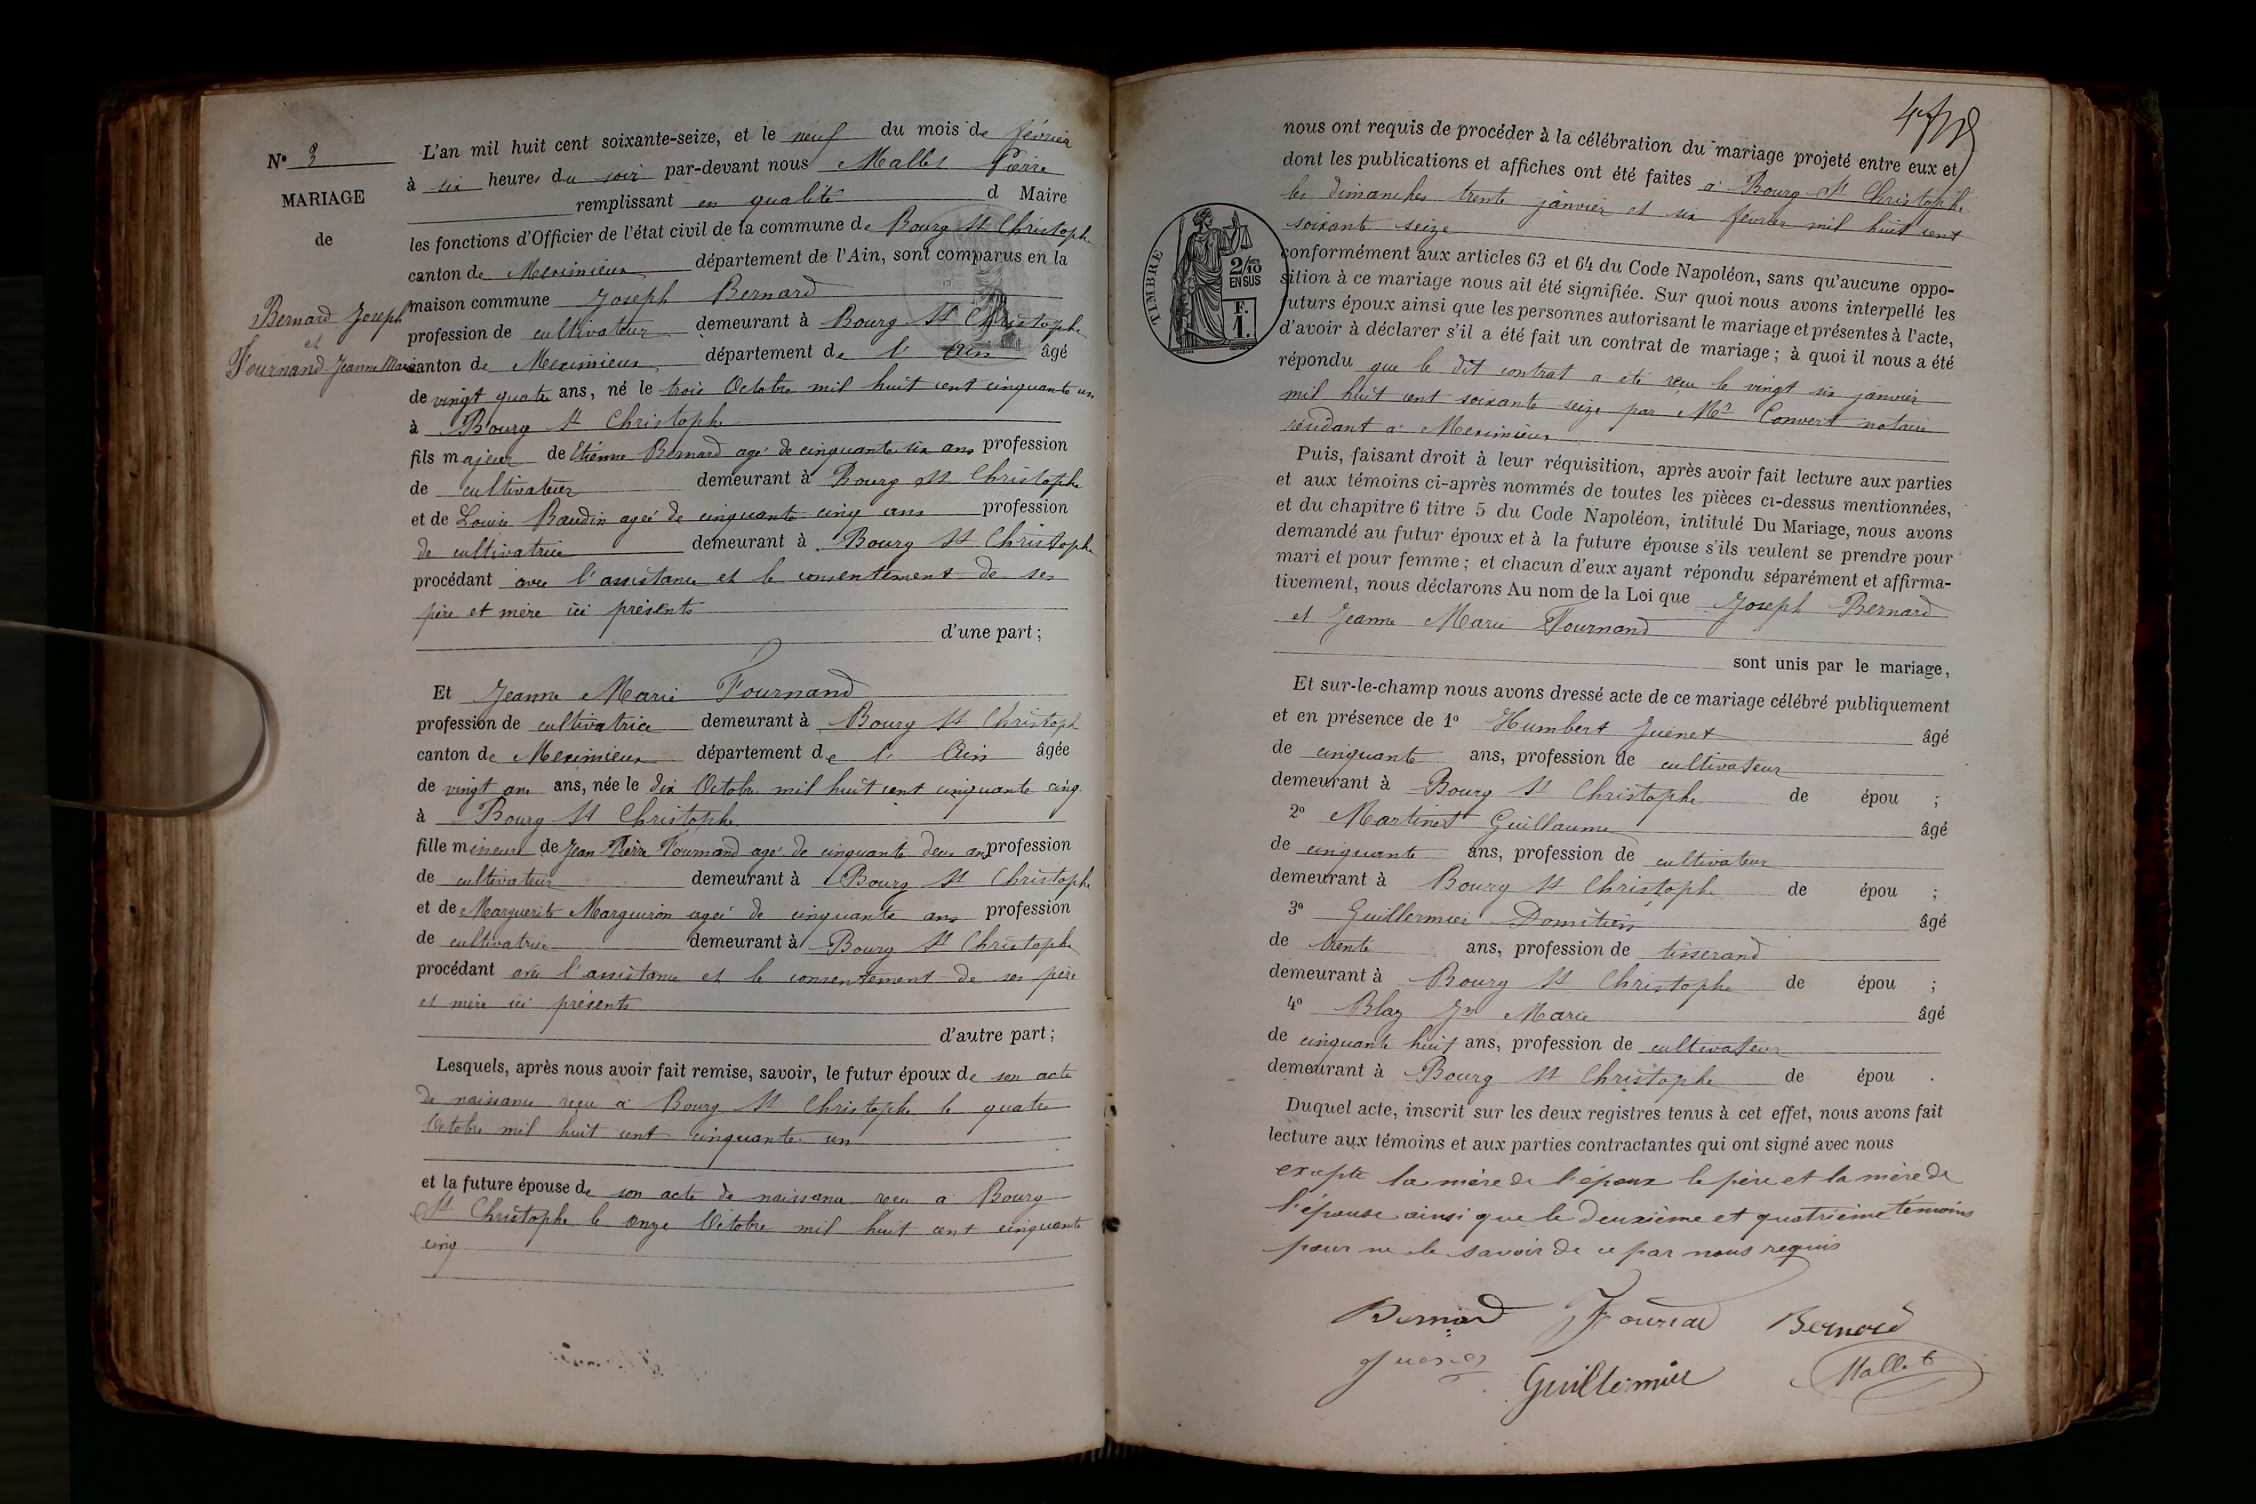 N° 3
MARIAGE
de
Bernard Joseph
et
Fournand Jeanne Marie
L'an mil huit cent soixante-seize, et le neuf du mois de février
à six heures du soir par-devant nous Mallet Pierre
remplissant en qualité d Maire
les fonctions d'Officier de l'état civil de la commune de Bourg St Christophe
canton de Meximieux département de l'Ain, sont comparus en la
maison commune Joseph Bernard
profession de cultivateur demeurant à Bourg St Christophe
canton de Meximieux département de l'Ain âgé
de vingt quatre ans, né le trois Octobre mil huit cent cinquante un
à Bourg St Christophe
fils majeur de Etienne Bernard agé de cinquante six ans profession
de cultivateur demeurant à Bourg St Christophe
et de Louise Baudin ageé de cinquante cinq ans profession
de cultivatrice demeurant à Bourg St Christophe
procédant avec l'assistance et le consentement de ses
père et mère ici présents
d'une part ;
Et Jeanne Marie Fournand
profession de cultivatrice demeurant à Bourg St Christoph
canton de Meximieux département de l'Ain âgée
de vingt ans ans, née le dix Octobre mil huit cent cinquante cinq
à Bourg St Christophe
fille mineure de Jean Pierre Fournand agé de cinquante deux ans profession
de cultivateur demeurant à Bourg St Christophe
et de Marguerite Marguiron ageé de cinquante ans profession
de cultivatrice demeurant à Bourg St Christophe
procédant avec l'assistance et le consentement de ses père
et mère ici présents
d'autre part ;
Lesquels, après nous avoir fait remise, savoir, le futur époux de son acte
de naissance reçu à Bourg St Christophe le quatre
Octobre mil huit cent cinquante un
et la future épouse de son acte de naissance reçu à Bourg
St Christophe le onze Octobre mil huit cent cinquante
cinq
nous ont requis de procéder à la célébration du mariage projeté entre eux et
dont les publications et affiches ont été faites à Bourg St Christophe
les dimanches trente janvier et six fevrier mil huit cent
soixante seize
conformément aux articles 63 et 64 du Code Napoléon, sans qu'aucune oppo-
sition à ce mariage nous ait été signifiée. Sur quoi nous avons interpellé les
futurs époux ainsi que les personnes autorisant le mariage et présentes à l'acte,
d'avoir à déclarer s'il a été fait un contrat de mariage ; à quoi il nous a été
répondu que le dit contrat a été reçu le vingt six janvier
mil huit cent soixante seize par Mr Convert notaire
résidant à Meximieux
TIMBRE
2/10
EN SUS
F.
1.
Puis, faisant droit à leur réquisition, après avoir fait lecture aux parties
et aux témoins ci-après nommés de toutes les pièces ci-dessus mentionnées,
et du chapitre 6 titre 5 du Code Napoléon, intitulé Du Mariage, nous avons
demandé au futur époux et à la future épouse s'ils veulent se prendre pour
mari et pour femme ; et chacun d'eux ayant répondu séparément et affirma-
tivement, nous déclarons Au nom de la Loi que Joseph Bernard
et Jeanne Marie Fournand
sont unis par le mariage,
Et sur-le-champ nous avons dressé acte de ce mariage célébré publiquement
et en présence de 1° Humbert Juenet âgé
de cinquante ans, profession de cultivateur
demeurant à Bourg St Christophe de épou ;
2° Martinet Guillaume âgé
de cinquante ans, profession de cultivateur
demeurant à Bourg St Christophe de épou ;
3° Guillermier Domitien âgé
de trente ans, profession de tisserand
demeurant à Bourg St Christophe de épou ;
4° Blay Jn Marie âgé
de cinquante huit ans, profession de cultivateur
demeurant à Bourg St Christophe de épou .
Duquel acte, inscrit sur les deux registres tenus à cet effet, nous avons fait
lecture aux témoins et aux parties contractantes qui ont signé avec nous
excepte la mère de l'époux le père et la mère de
l'épouse ainsi que le deuxième et quatrième témoins
pour ne le savoir de ce par nous requis
Bernard Bernard
Juenet Guillermier Mallet